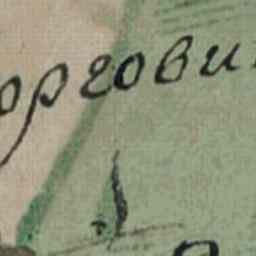 оргови